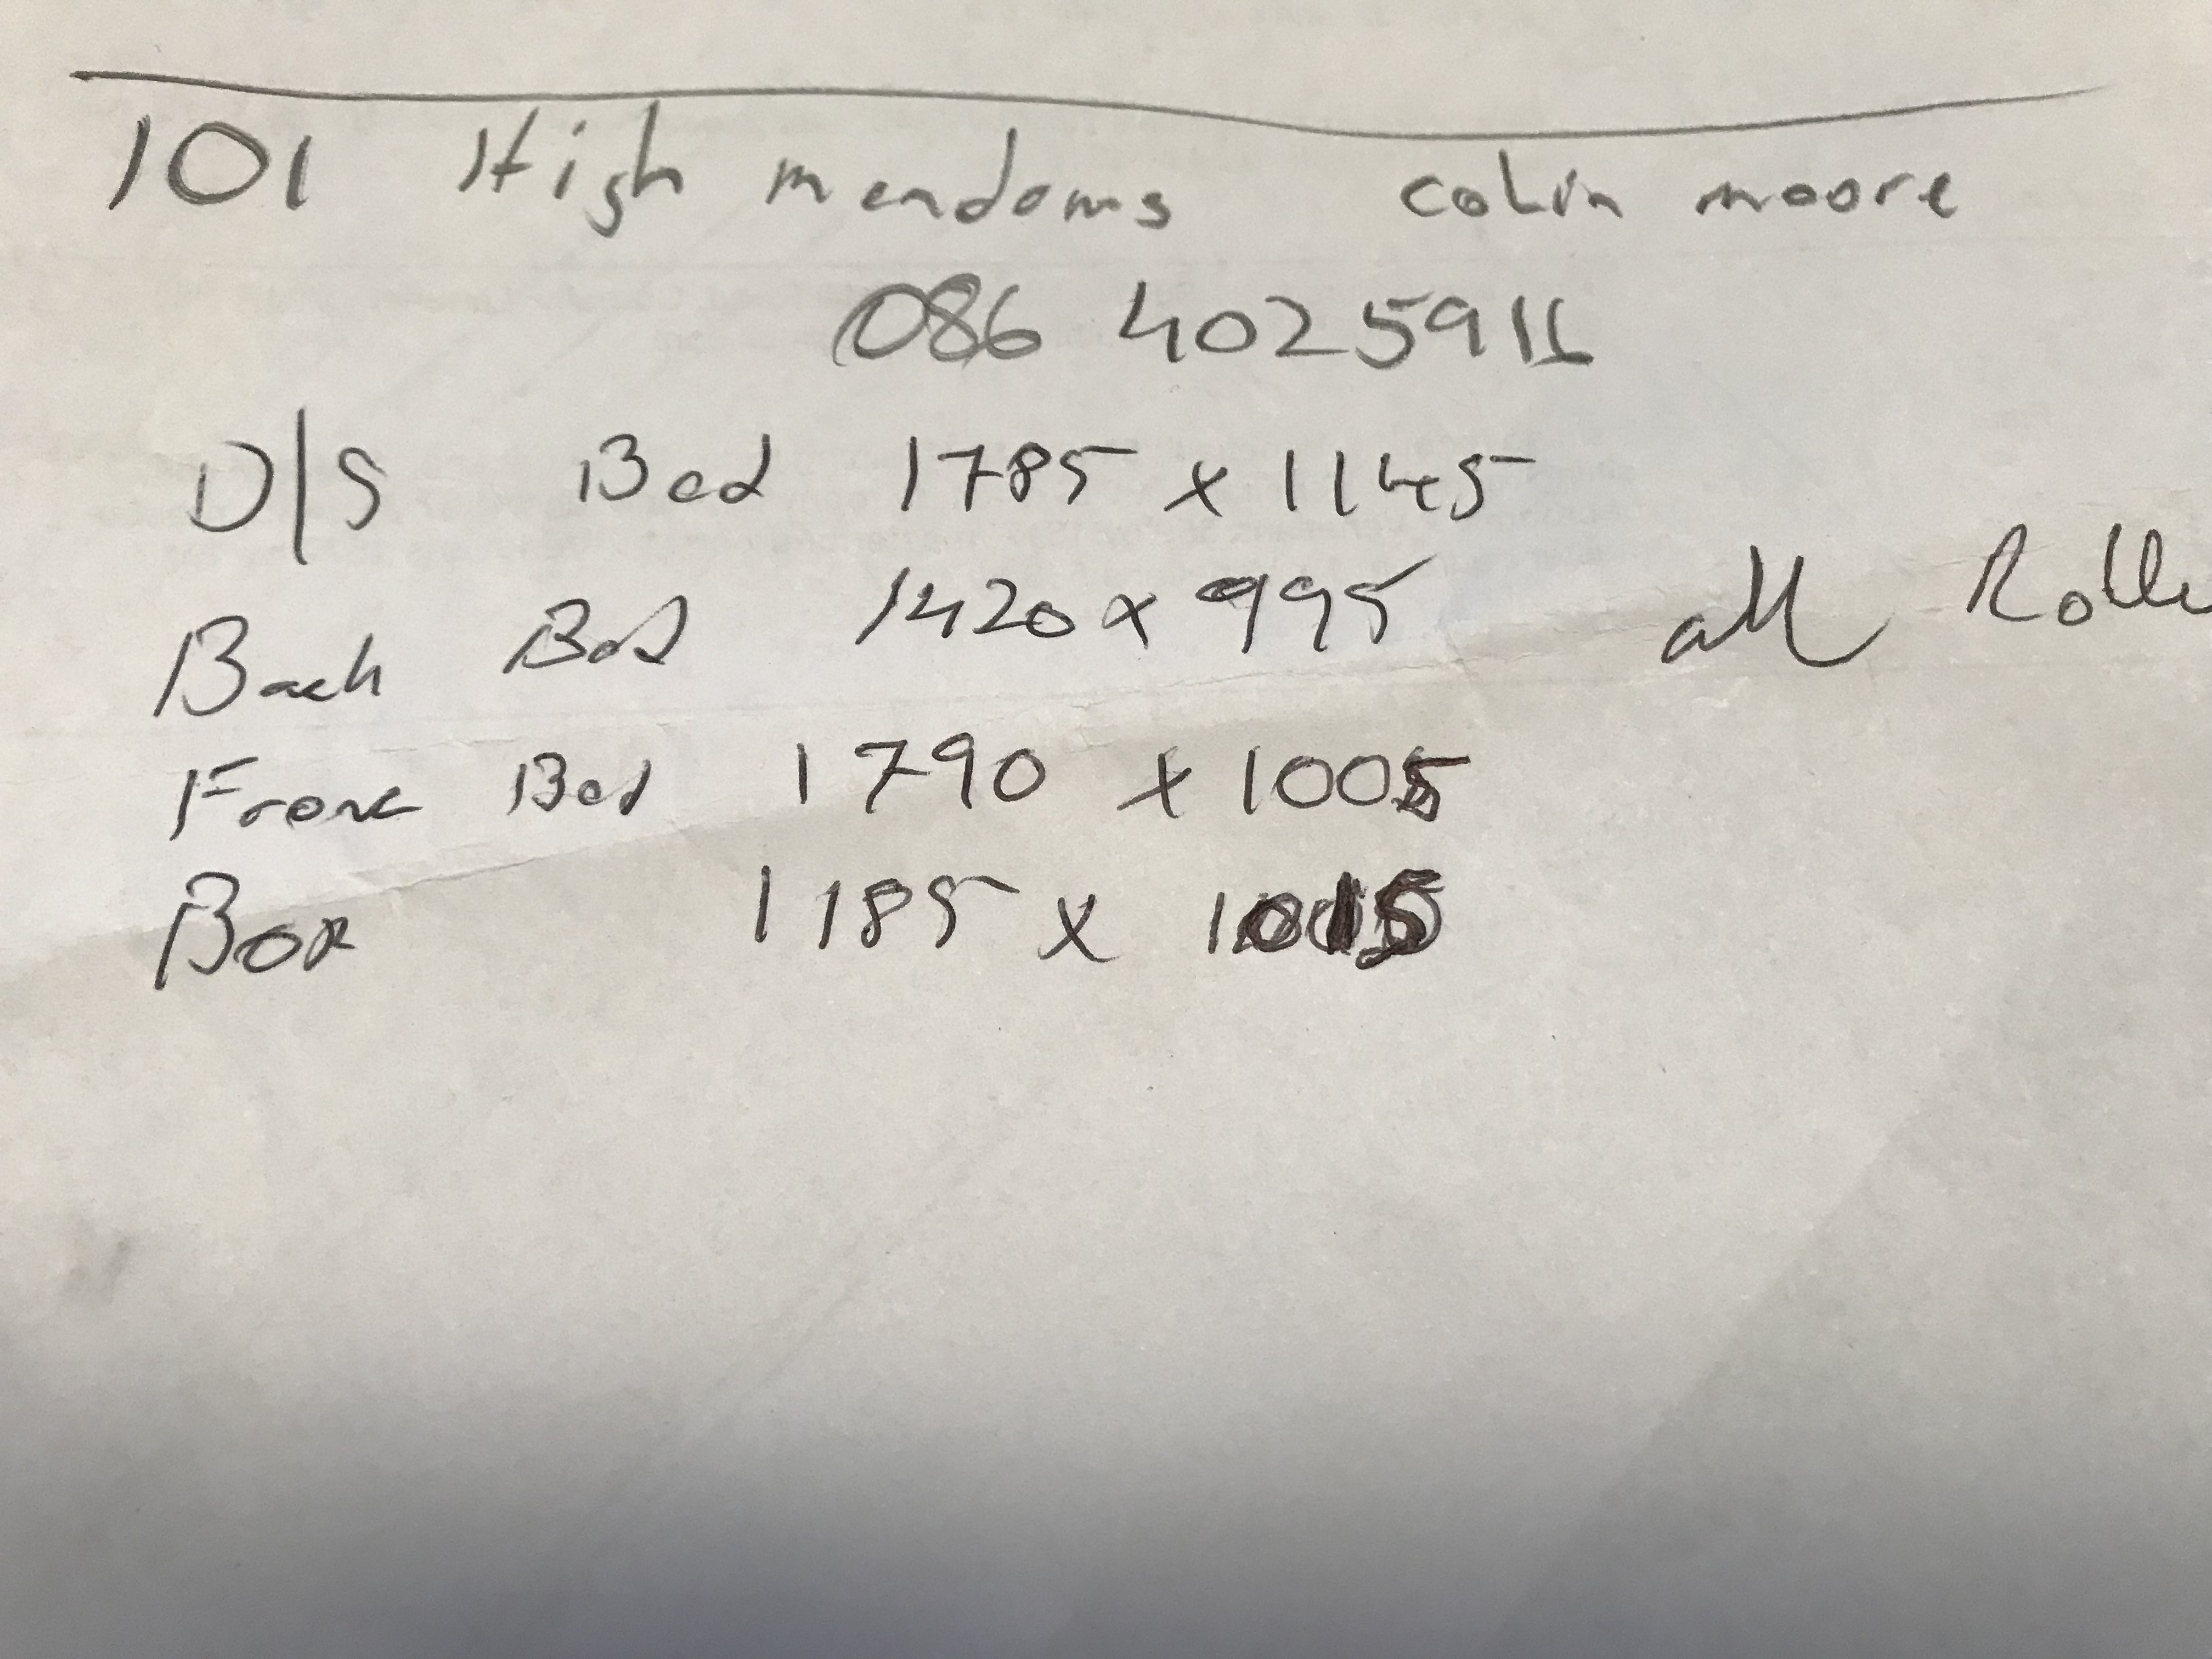 101 High mendoms colin moore
086 4025911
D/S Bed 1785 x 1145
Back Bed 1420 x 995 all Rolle
Front Bed 1790 x 1005
Box 1185 x 1015